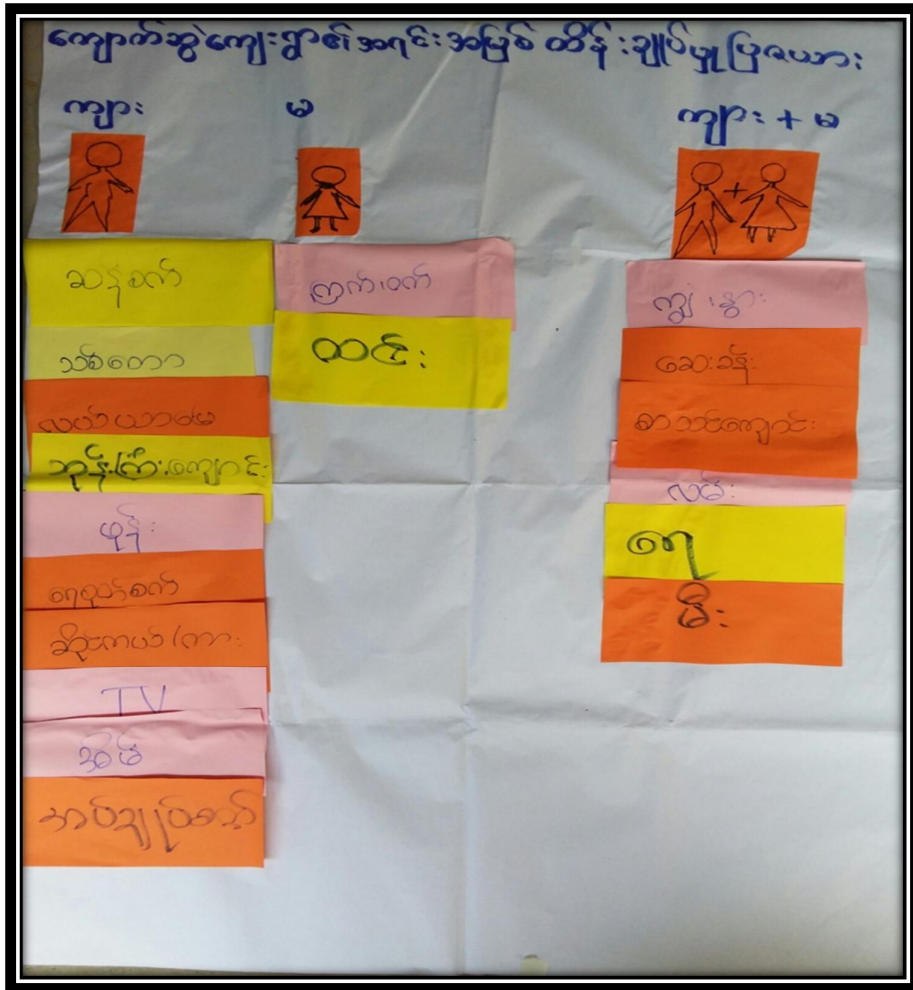 ကျောက်ဆွဲကျေးရွာ၏အရင်းအမြစ် ထိန်းချုပ်မှုပြဇယား
ကျား
မ
ကျား + မ
+
ဆန်စက်
သစ်တော
လယ်ယာမြေ
ဘုန်းကြီးကျောင်း
ဖုန်း
ရေစုပ်စက်
ဆိုင်ကယ်/ကား
TV
အိမ်
အပ်ချုပ်စက်
ကြက်၊ဝက်
ထင်း
ကျွဲ၊နွား
ဆေးခန်း
စာသင်ကျောင်း
လမ်း
ရေ
မီး